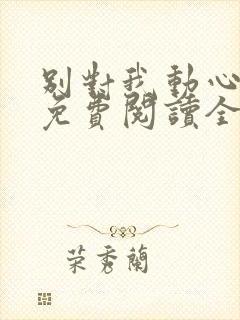 別對我動心
免費閱讀全
荣秀蘭